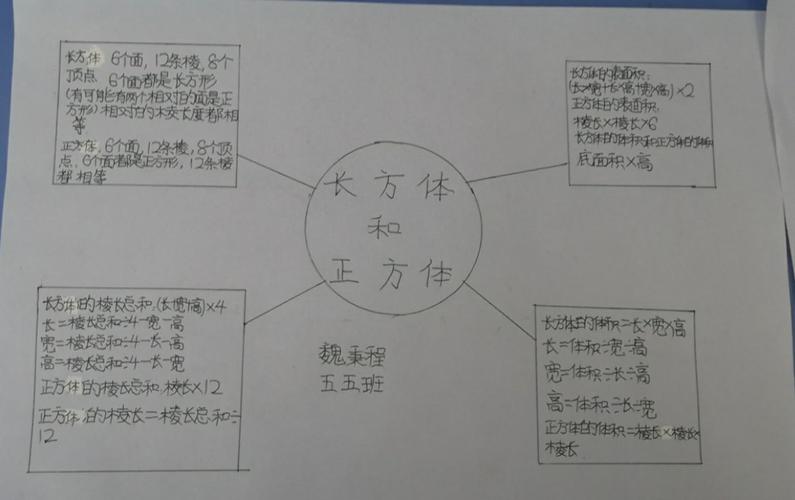 长方体 6个面,12条棱,8个
顶点 6个面都是长方形
(有可能有两个相对的面是正
方形)相对的棱长度都相
等
正方体,6个面,12条棱,8个顶
点,6个面都是正方形,12条棱
都相等
长方体的表面积:
(长×宽+长×高+宽×高)×2
正方体的表面积:
棱长×棱长×6
长方体的体积和正方体的体积
底面积×高
长方体
和
正方体
长方体的棱长总和:(长+宽+高)×4
长=棱长总和÷4-宽-高
宽=棱长总和÷4-长-高
高=棱长总和÷4-长-宽
正方体的棱长总和:棱长×12
正方体的棱长=棱长总和÷
12
魏秉程
五五班
长方体的体积=长×宽×高
长=体积÷宽÷高
宽=体积÷长÷高
高=体积÷长÷宽
正方体的体积=棱长×棱长×
棱长